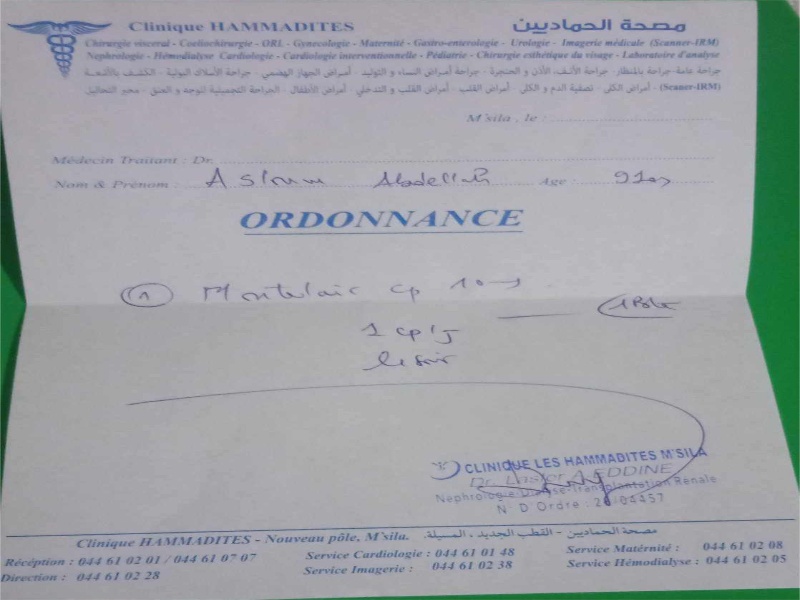 Clinique HAMMADITES
مصحة الحماديين
Chirurgie viscéral - Coeliochirurgie - ORL - Gynecologie - Maternité - Gastro-enterologie - Urologie - Imagerie médicale (Scanner-IRM)
Nephrologie - Hémodialyse Cardiologie - Cardiologie interventionnelle - Pédiatrie - Chirurgie esthétique du visage - Laboratoire d'analyse
جراحة عامة-جراحة بالمنظار - جراحة الأنف، الأذن و الحنجرة - جراحة أمراض النساء و التوليد - أمراض الجهاز الهضمي - جراحة الأسلاك البولية - الكشف بالأشعة
(Scaner-IRM) - أمراض الكلى - تصفية الدم و الكلى - أمراض القلب - أمراض القلب و التدخلي - أمراض الأطفال - الجراحة التجميلية للوجه و العنق - مخبر التحاليل
M'sila , le :
Médecin Traitant : Dr.
Nom & Prénom : Abdellah Age :
ORDONNANCE
1 cp 10
1 cp/j
le soir
CLINIQUE LES HAMMADITES M'SILA
Dr. EDDINE
Nephrologie-Dialyse-Transplantation Rénale
N° D Ordre : 28/04457
Clinique HAMMADITES - Nouveau pôle, M'sila. مصحة الحماديين - القطب الجديد ، المسيلة.
Réception : 044 61 02 01 / 044 61 07 07 Service Cardiologie : 044 61 01 48 Service Matérnité : 044 61 02 08
Direction : 044 61 02 28 Service Imagerie : 044 61 02 38 Service Hémodialyse : 044 61 02 05